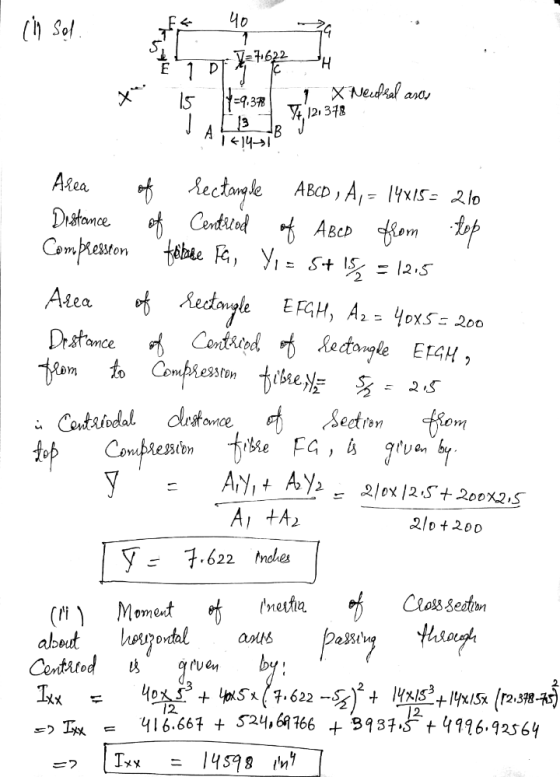 (i) Sol.
F 40 G
5
E D ȳ=7.622 C H
X 15 y=9.378 X Neutral axis
ȳt, 12.378
13
A B
14
Area of Rectangle ABCD, A1 = 14x15 = 210
Distance of Centriod of ABCD from top
Compression fibre FG, Y1 = 5+ 15/2 = 12.5
Area of Rectangle EFGH, A2 = 40x5 = 200
Distance of Centriod of Rectangle EFGH,
from to Compression fibre, Y2 = 5/2 = 2.5
∴ Centriodal distance of Section from
top Compression fibre FG, is given by.
ȳ = A1Y1 + A2Y2 / A1 + A2 = 210x12.5 + 200x2.5 / 210+200
ȳ = 7.622 inches
(ii) Moment of inertia of Cross section
about horizontal axis passing through
Centriod is given by:
Ixx = 40x5³/12 + 40x5x(7.622 - 5/2)² + 14x15³/12 + 14x15x (12.378-7.5)²
=> Ixx = 416.667 + 524.69766 + 3937.5 + 4996.92564
=> Ixx = 14598 in⁴